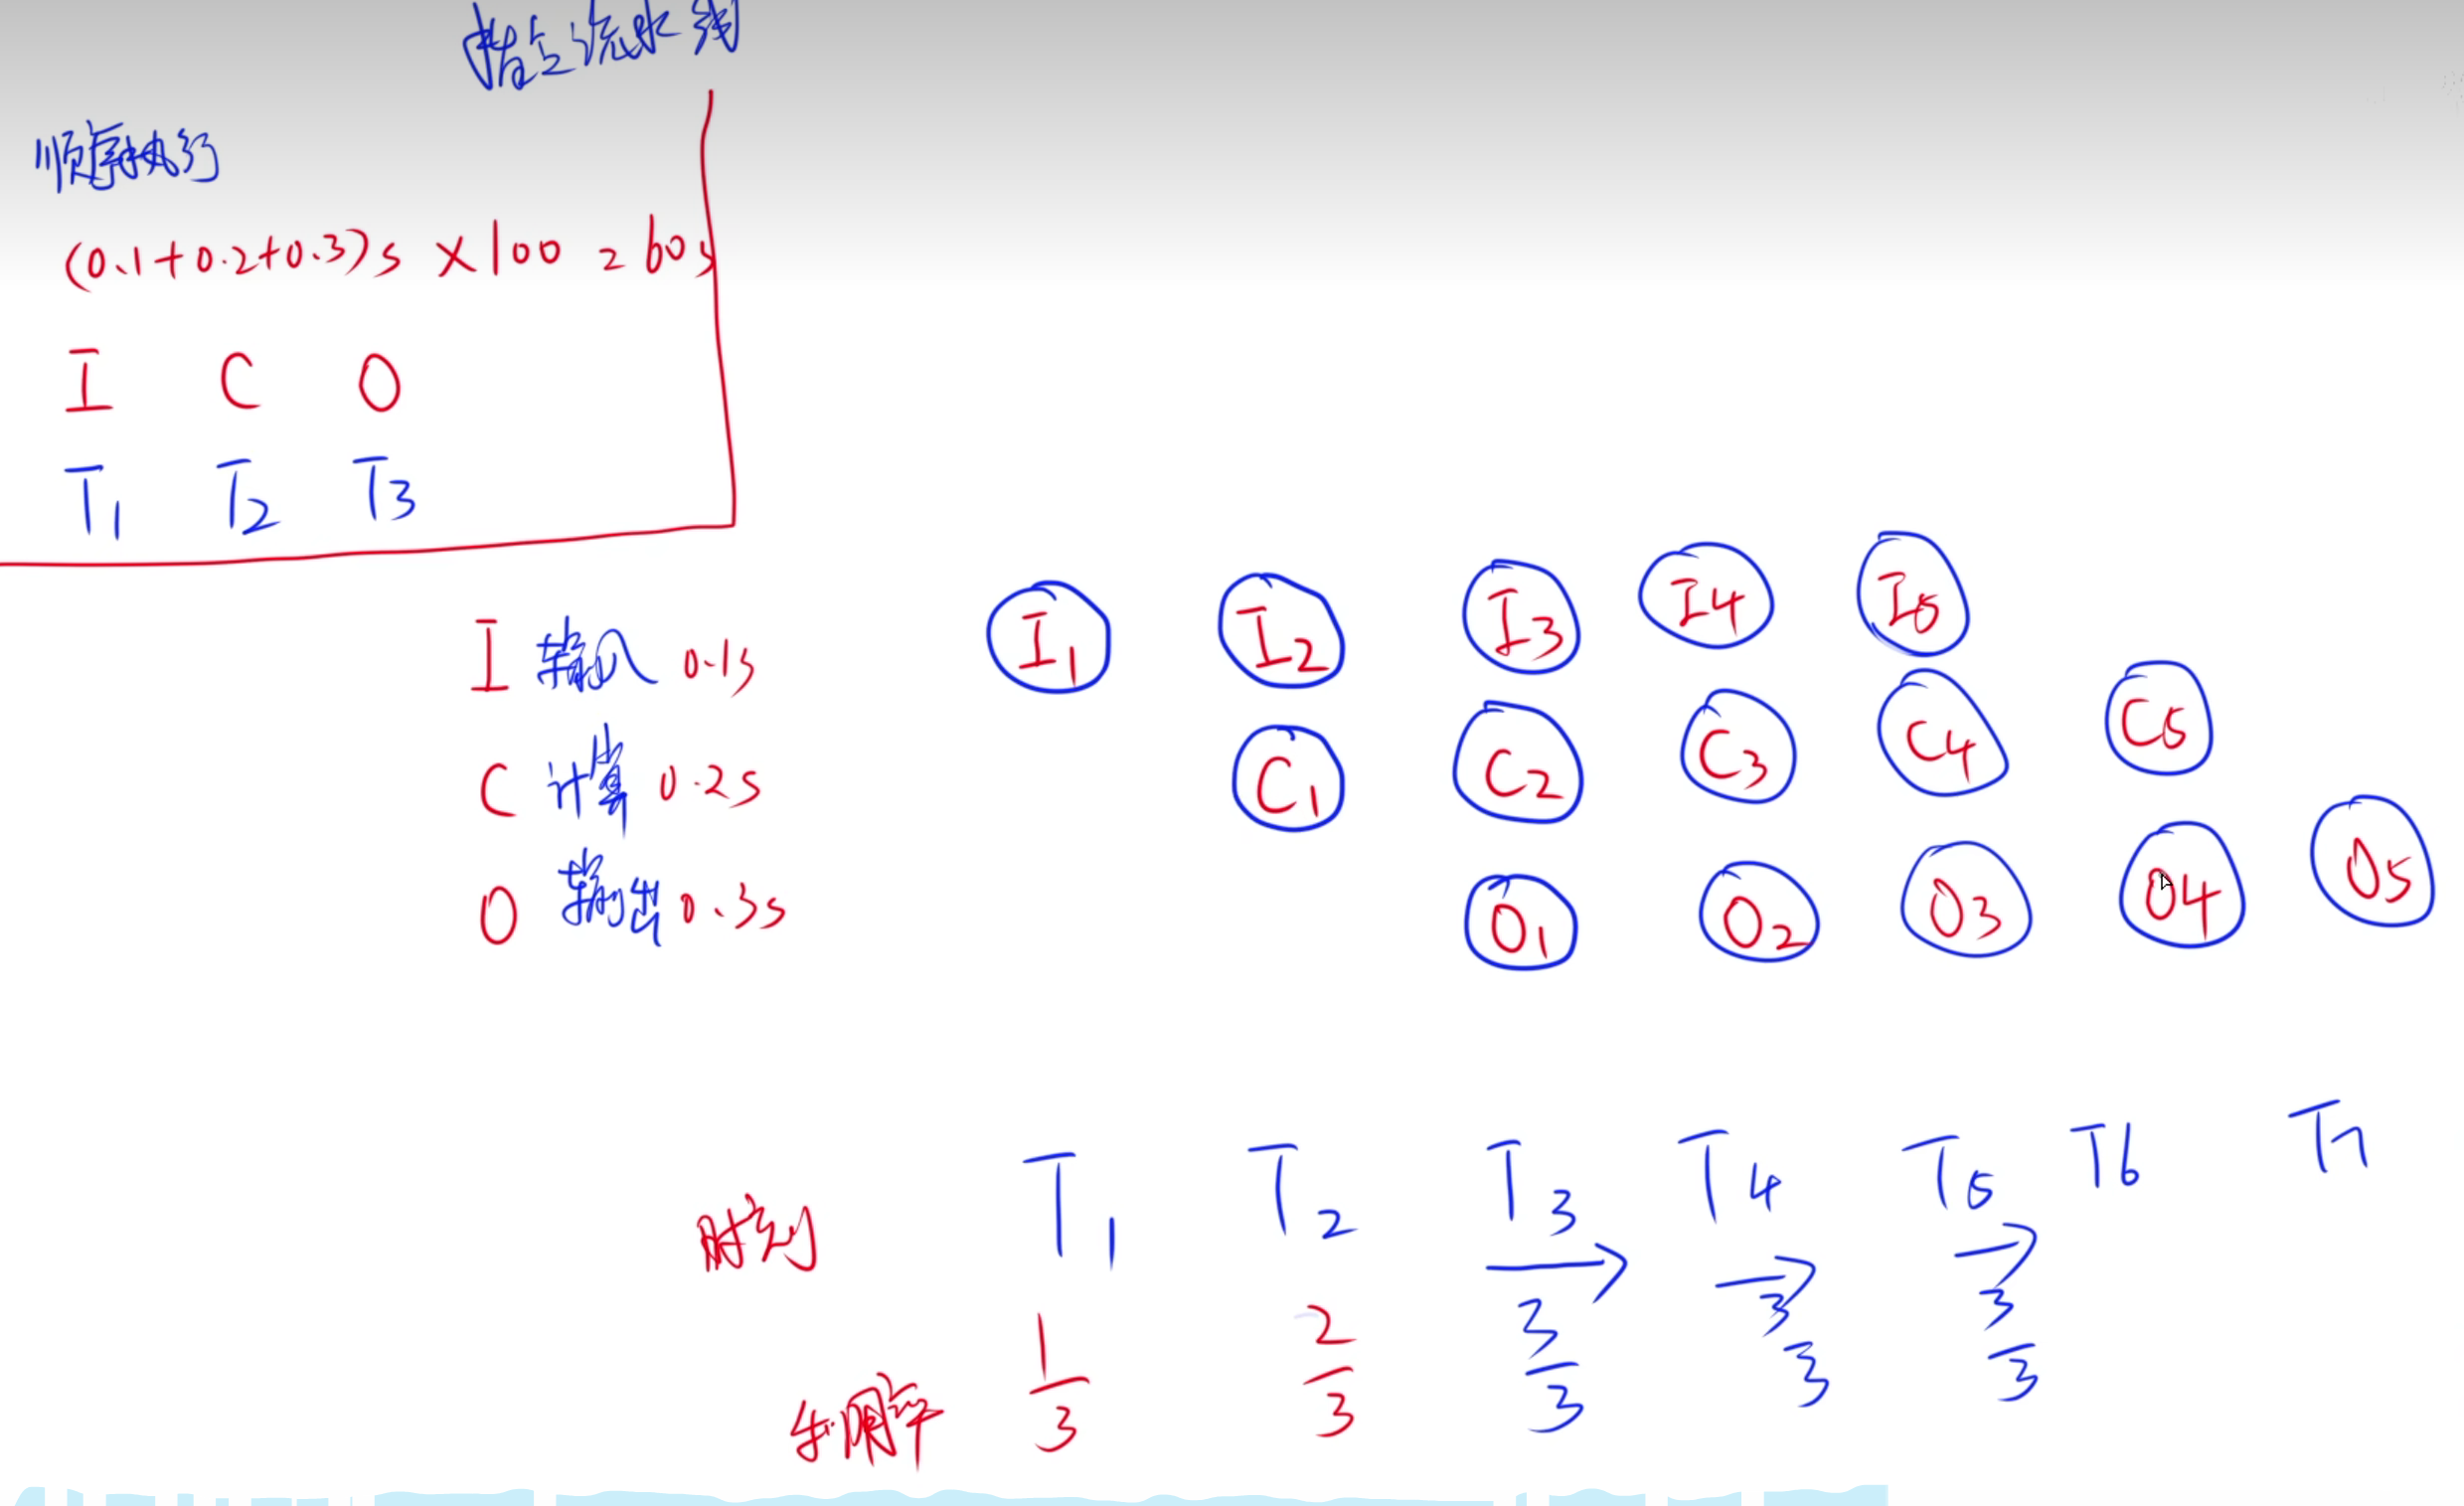 指令流水线
顺序执行
(0.1+0.2+0.3)s ×100 = 60s
I C O
T1 T2 T3
I 输入 0.1s
C 计算 0.2s
O 输出 0.3s
I1 I2 I3 I4 I5
C1 C2 C3 C4 C5
O1 O2 O3 O4 O5
时刻 T1 T2 T3 T4 T5 T6 T7
1/3 2/3 3/3 3/3 3/3